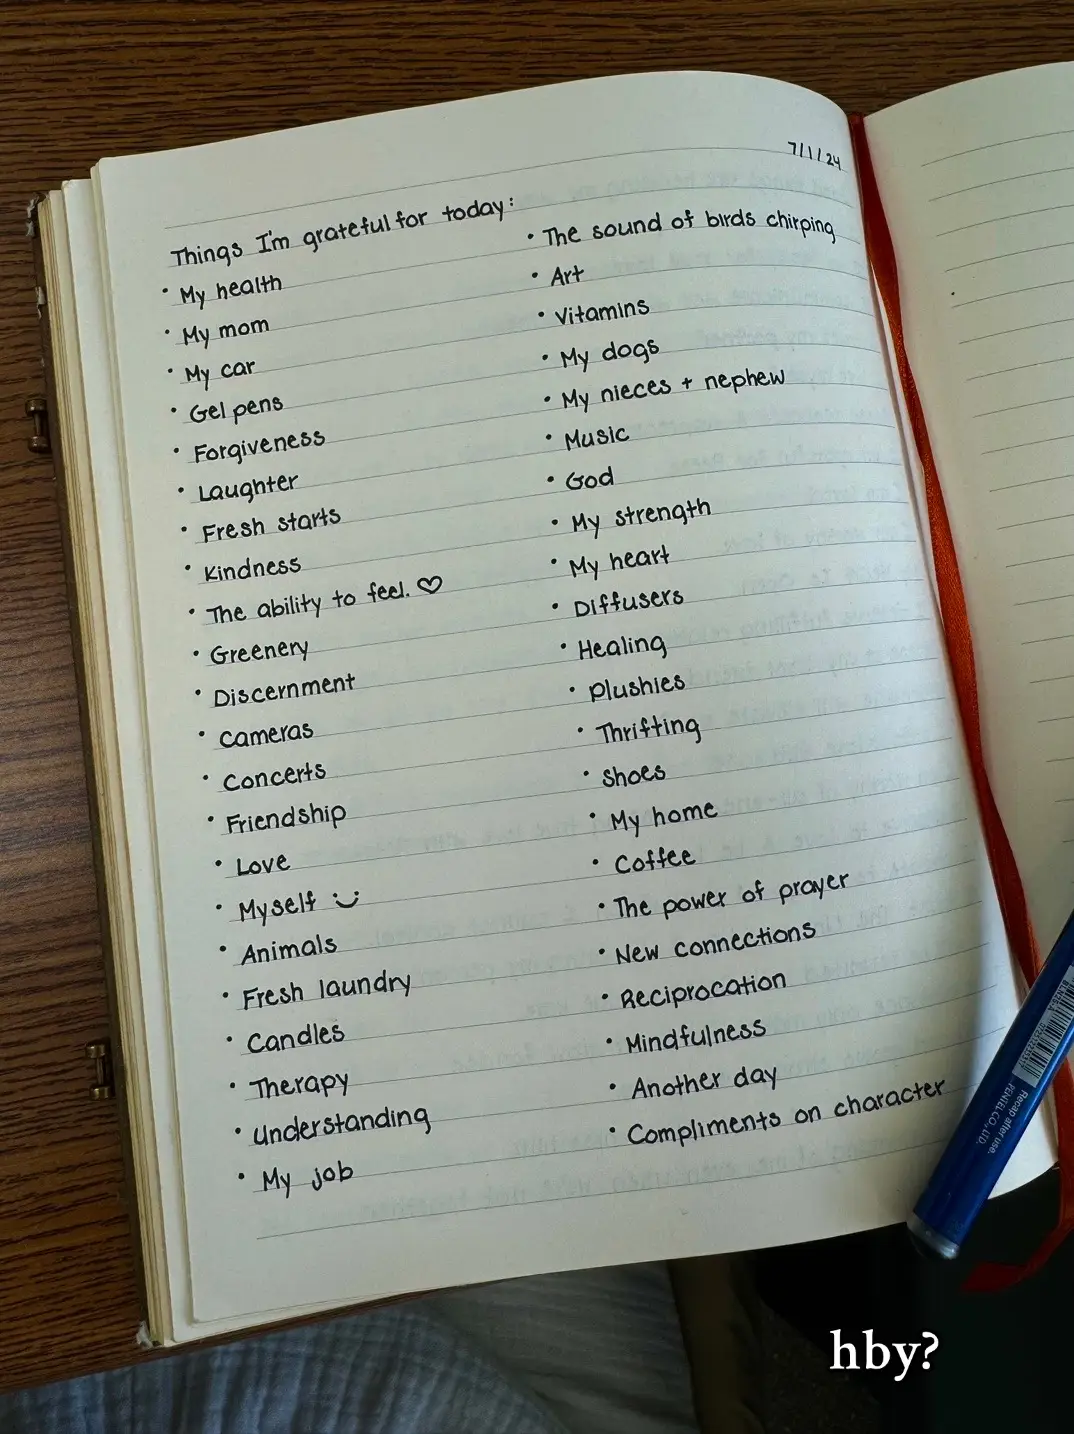 7/1/24
Things I'm grateful for today:
• My health
• My mom
• My car
• Gel pens
• Forgiveness
• Laughter
• Fresh starts
• Kindness
• The ability to feel. ♡
• Greenery
• Discernment
• Cameras
• Concerts
• Friendship
• Love
• Myself :)
• Animals
• Fresh laundry
• Candles
• Therapy
• Understanding
• My job
• The sound of birds chirping
• Art
• Vitamins
• My dogs
• My nieces + nephew
• Music
• God
• My strength
• My heart
• Diffusers
• Healing
• Plushies
• Thrifting
• Shoes
• My home
• Coffee
• The power of prayer
• New connections
• Reciprocation
• Mindfulness
• Another day
• Compliments on character
Recap after use.
PENTEL CO., LTD.
hby?